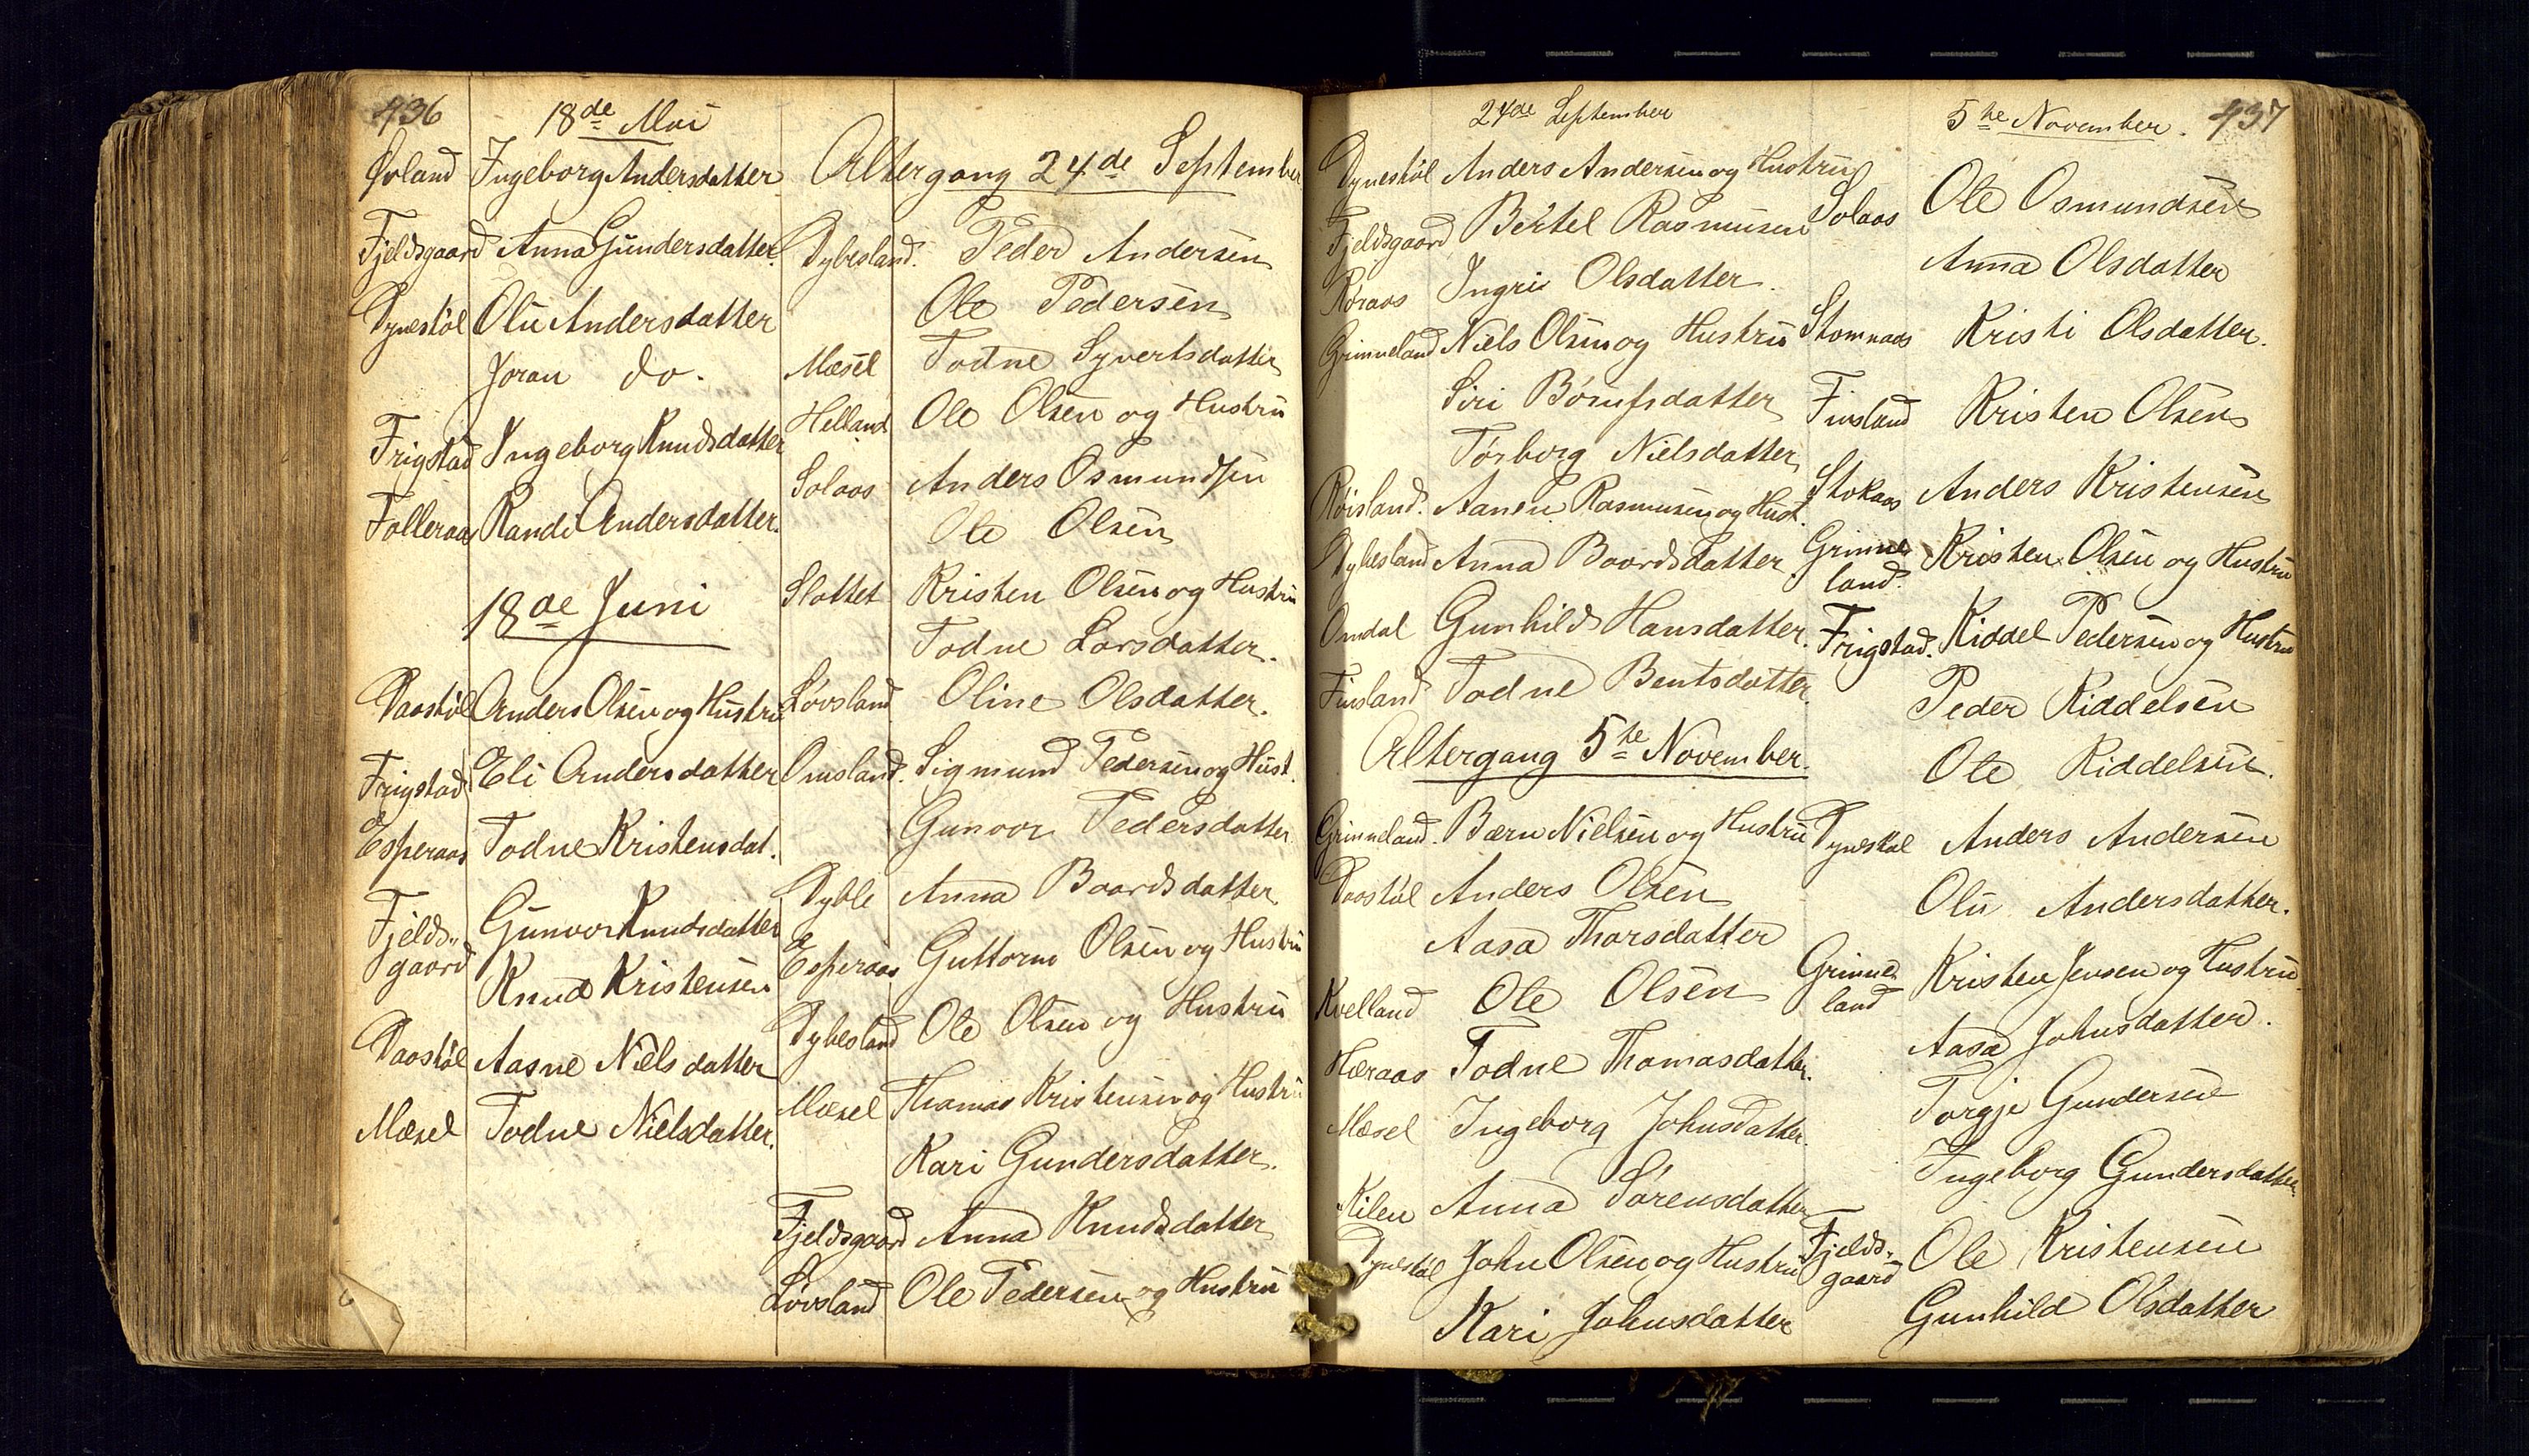 436
18de Mai
Øvland Ingeborg Andersdatter
Fjeldsgaard Anna Gundersdatter.
Dynestøl Olu Andersdatter
Joran do.
Frigstad Ingeborg Knudsdatter
Folleraas Randi Andersdatter.
18de Juni
Daastøl Anders Olsen og Hustru
Frigstad Eli Andersdatter
Esperaas Todne Kristensdat.
Fjelds-
gaard Gunvor Knudsdatter
Knud Kristensen
Daastøl Aasne Nielsdatter
Mæsel Todne Nielsdatter.
Altergang 24de September
Dybesland. Peder Andersen
Ole Pedersen
Mæsel Todne Syvertsdatter
Helland Ole Olsen og Hustru
Solaas Anders Osmundsen
Ole Olsen
Slottet Kristen Olsen og Hustru
Todne Larsdatter.
Løvsland Oline Olsdatter.
Omsland. Sigmund Pedersen og Hust.
Gunvor Pedersdatter
Dyble Anna Baardsdatter
Esperaas Guttorm Olsen og Hustru
Dybesland Ole Olsen og Hustru
Mæsel Thomas Kristensen og Hustru
Kari Gundersdatter.
Fjeldsgaard Anna Knudsdatter
Løvsland Ole Pedersen og Hustru
24de September
Dynestøl Anders Andersen og Hustru
Fjeldsgaard Bertel Rasmussen
Røraas Ingri Olsdatter.
Grimneland Niels Olsen og Hustru
Siri Børufsdatter
Torborg Nielsdatter
Røisland. Aanen Rasmussen og Hust.
Dybesland Anna Baardsdatter
Omdal Gunhild Hansdatter.
Finsland Todne Bentsdatter.
Altergang 5te November.
Grimneland. Bærn Nielsen og Hustru
Daastøl Anders Olsen
Aasa Thorsdatter
Kvelland Ole Olsen
Hæraas Todne Thomasdatter.
Mæsel Ingeborg Johnsdatter.
Kilen Anna Sørensdatter
Dynestøl John Olsen og Hustru
Kari Johnsdatter
5te November. 437
Solaas Ole Osmundsen
Anna Olsdatter
Stomnaas Kristi Olsdatter.
Finsland Kristen Olsen
Stokaas Anders Kristensen
Grimne
land. Kristen Olsen og Hustru
Frigstad. Kiddel Pedersen og Hustru
Peder Kiddelsen
Ole Kiddelsen.
Dynestøl Anders Andersen
Olu Andersdatter.
Grimne
land Kristen Jensen og Hustru
Aasa Johnsdatter.
Torgje Gundersen
Ingeborg Gundersdatter
Fjelds-
gaard Ole Kristensen
Gunhild Olsdatter